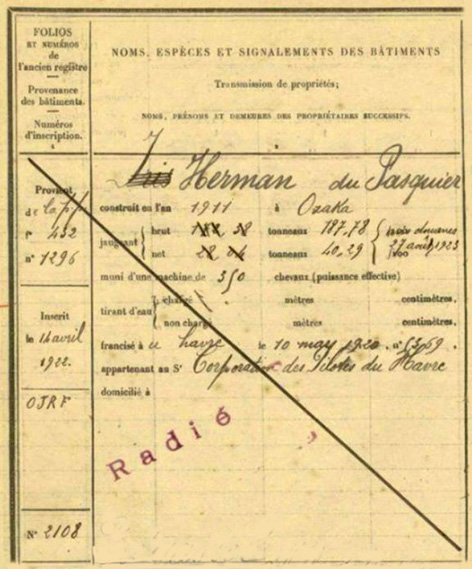 FOLIOS
ET NUMÉROS
de
l'ancien registre
Provenance
des bâtiments.
Numéros
d'inscription.
1
NOMS, ESPÈCES ET SIGNALEMENTS DES BÂTIMENTS
Transmission de propriétés;
NOMS, PRÉNOMS ET DEMEURES DES PROPRIÉTAIRES SUCCESSIFS.
2
Provient
de
f° 432
n° 1296
Inscrit
le 14 avril
1922.
OJRF
N° 2108
Iris Herman du Pasquier
construit en l'an 1911 à Osaka
jaugeant
brut 38 tonneaux 187,78
net tonneaux 40,29
27 août 1923
muni d'une machine de 350 chevaux (puissance effective)
tirant d'eau
chargé mètres centimètres.
non chargé mètres centimètres.
francisé à Le havre le 10 may 1920. n°
appartenant au Sr Corporation des Pilotes du Havre
domicilié à
Radié